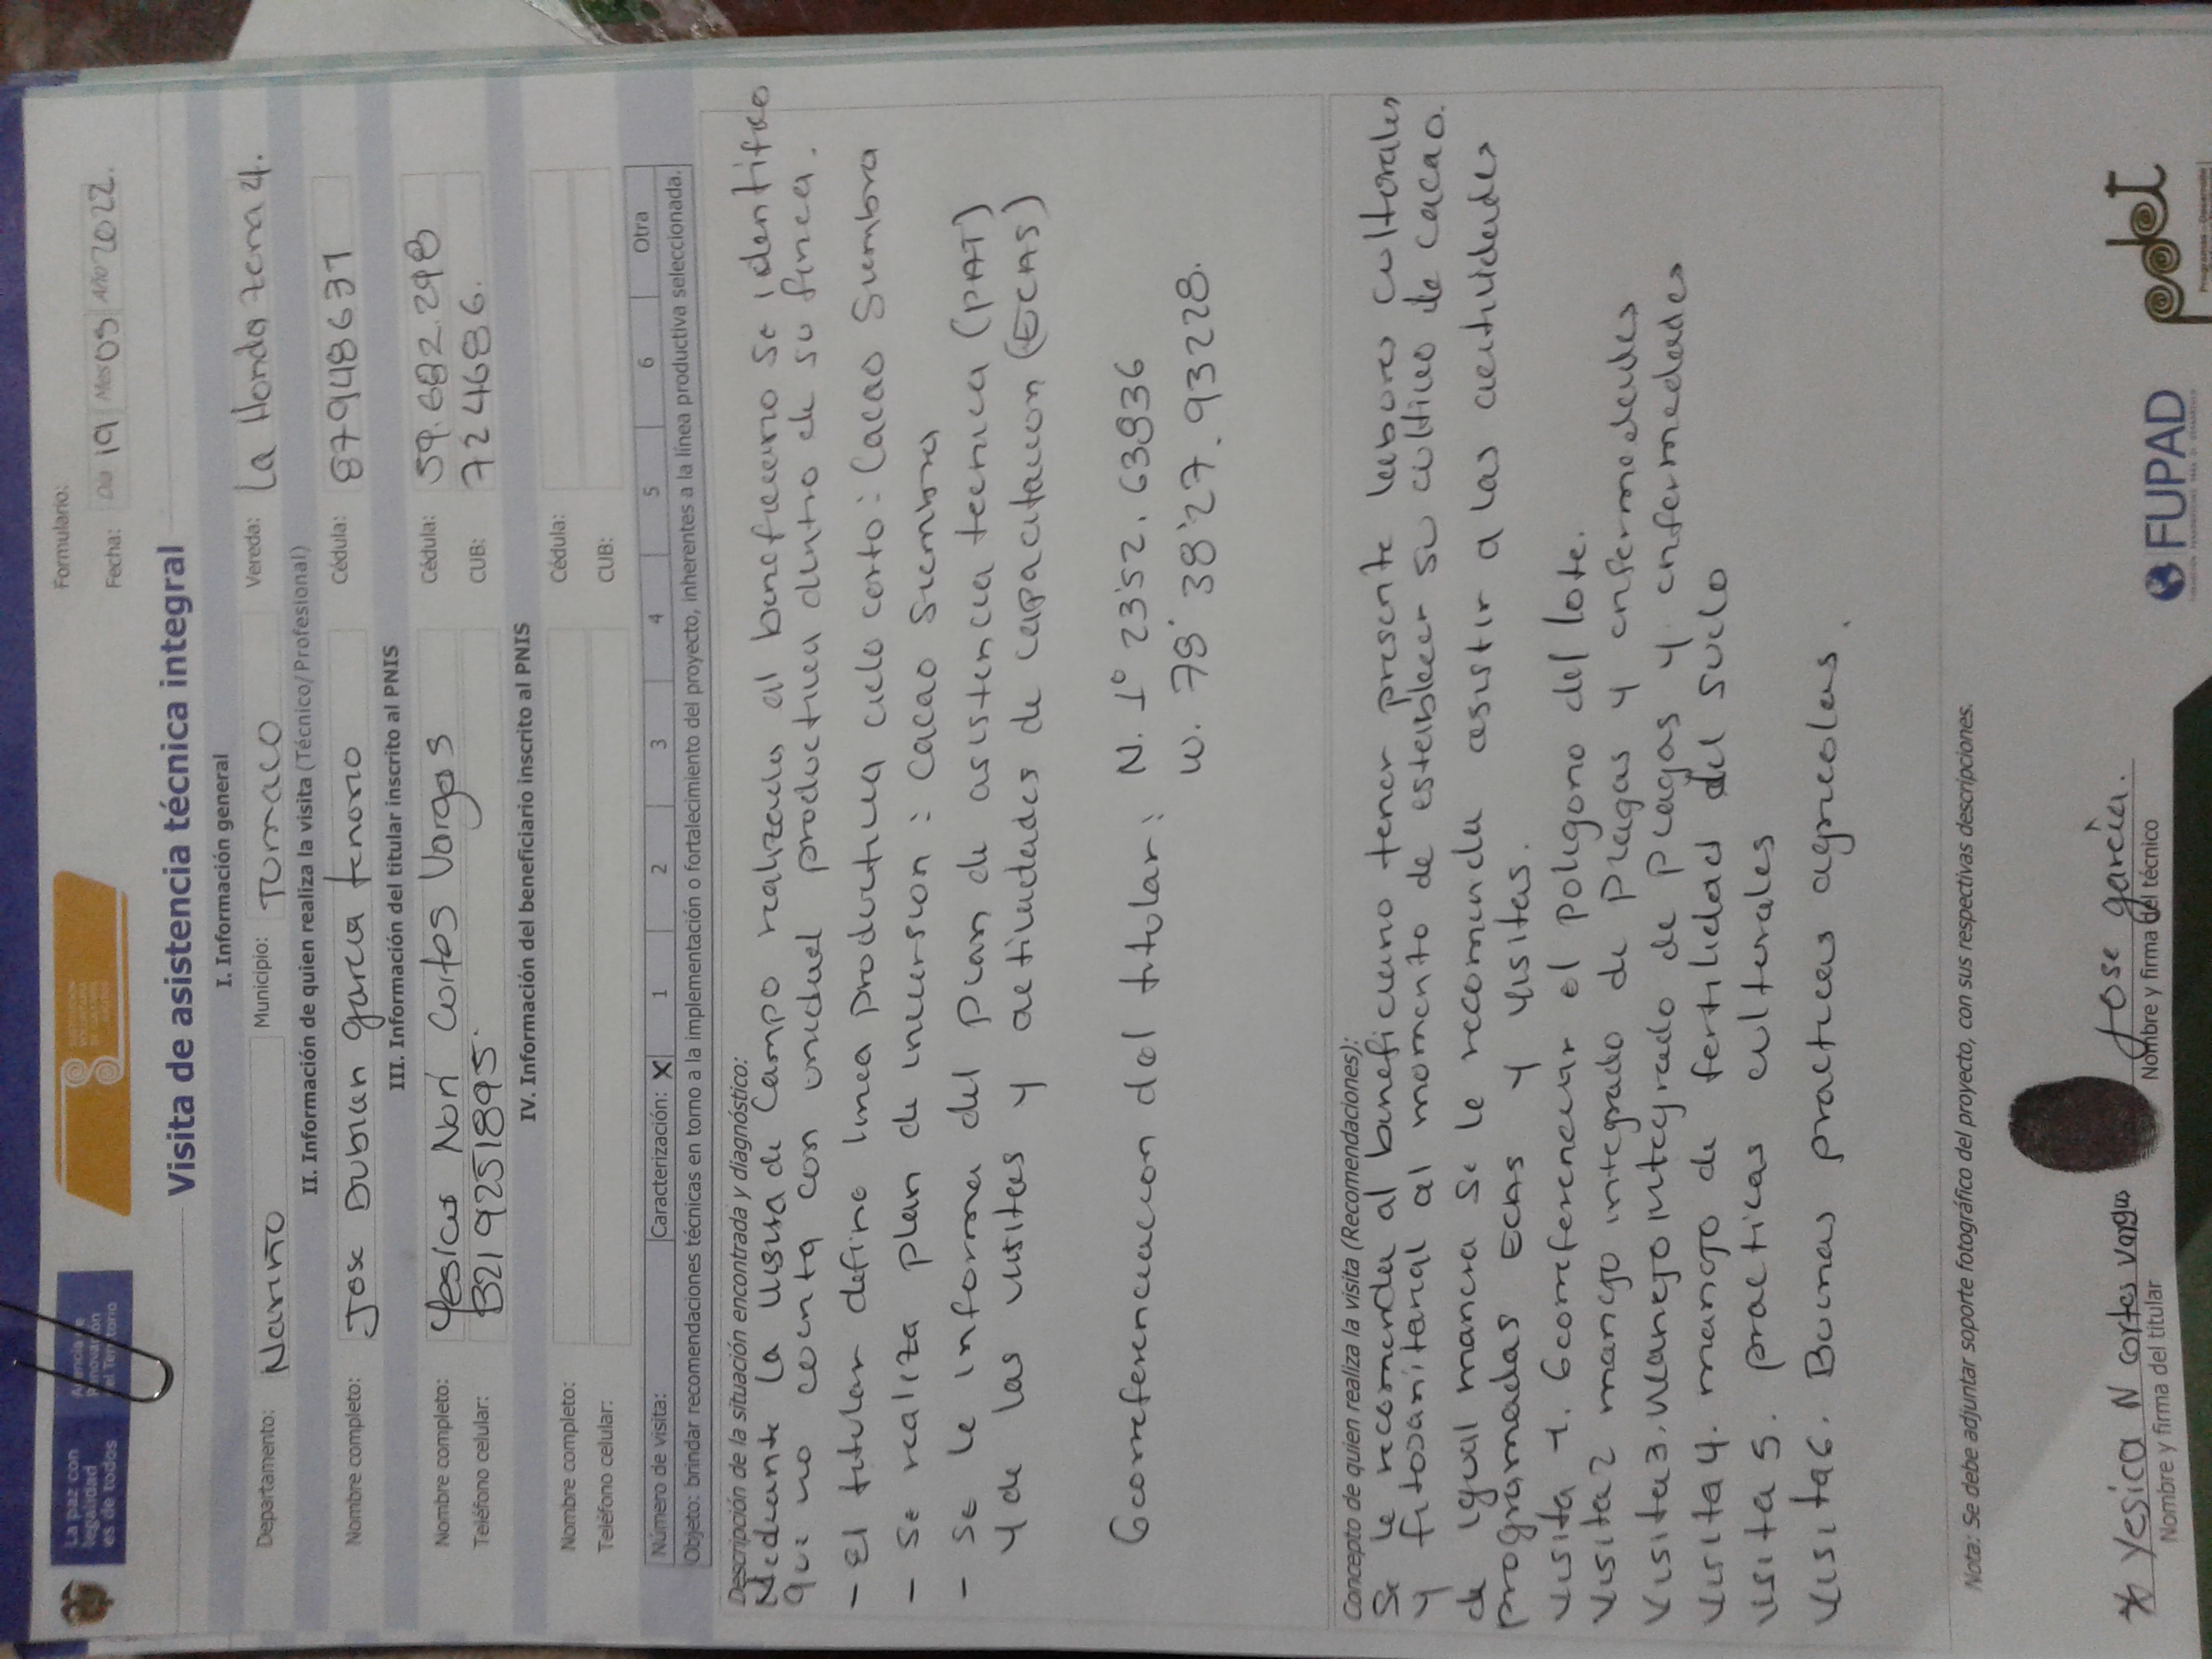 La paz con
legalidad
es de todos
Agencia de
Renovación
del Territorio
Formulario:
Fecha: Día 19 Mes 09 Año 2022.
Visita de asistencia técnica integral
I. Información general
Departamento: Nariño Municipio: Tumaco Vereda: La Honda zona 4.
II. Información de quien realiza la visita (Técnico/ Profesional)
Nombre completo: Jose Dubian garcia tenorio Cédula: 87948631
III. Información del titular inscrito al PNIS
Nombre completo: Yesica Nori Cortes Vargas Cédula: 59.682.298
Teléfono celular: 3219251895. CUB: 724686.
IV. Información del beneficiario inscrito al PNIS
Nombre completo: Cédula:
Teléfono celular: CUB:
Número de visita: Caracterización: X 1 2 3 4 5 6 Otra
Objeto: brindar recomendaciones técnicas en torno a la implementación o fortalecimiento del proyecto, inherentes a la línea productiva seleccionada.
Descripción de la situación encontrada y diagnóstico:
Mediante la visita de Campo realizada al beneficiario se identifico
que no cuenta con unidad productiva dentro de su finca.
- El titular define linea productiva ciclo corto: Cacao Siembra
- Se realiza plan de inversion: Cacao Siembra
- Se le informa del plan de asistencia tecnica (PAT)
y de las visitas y actividades de capacitacion (ECAS)
Georreferenciacion del titular: N. 1° 23'52.63936
W. 78° 38'27.93228.
Concepto de quien realiza la visita (Recomendaciones):
Se le recomienda al beneficiario tener presente labores culturales
y fitosanitaria al momento de establecer su cultivo de cacao.
de igual manera se le recomienda asistir a las actividades
programadas ECAS y visitas.
visita 1. Georreferenciar el poligono del lote.
visita 2 manejo integrado de plagas y enfermedades
visita 3. Manejo integrado de plagas y enfermedades
visita 4. manejo de fertilidad del suelo
visita 5. practicas culturales
visita 6. Buenas practicas agricolas.
Nota: Se debe adjuntar soporte fotográfico del proyecto, con sus respectivas descripciones.
Yesica N cortes vargas
Nombre y firma del titular
Jose garcia.
Nombre y firma del técnico
FUPAD
pdet